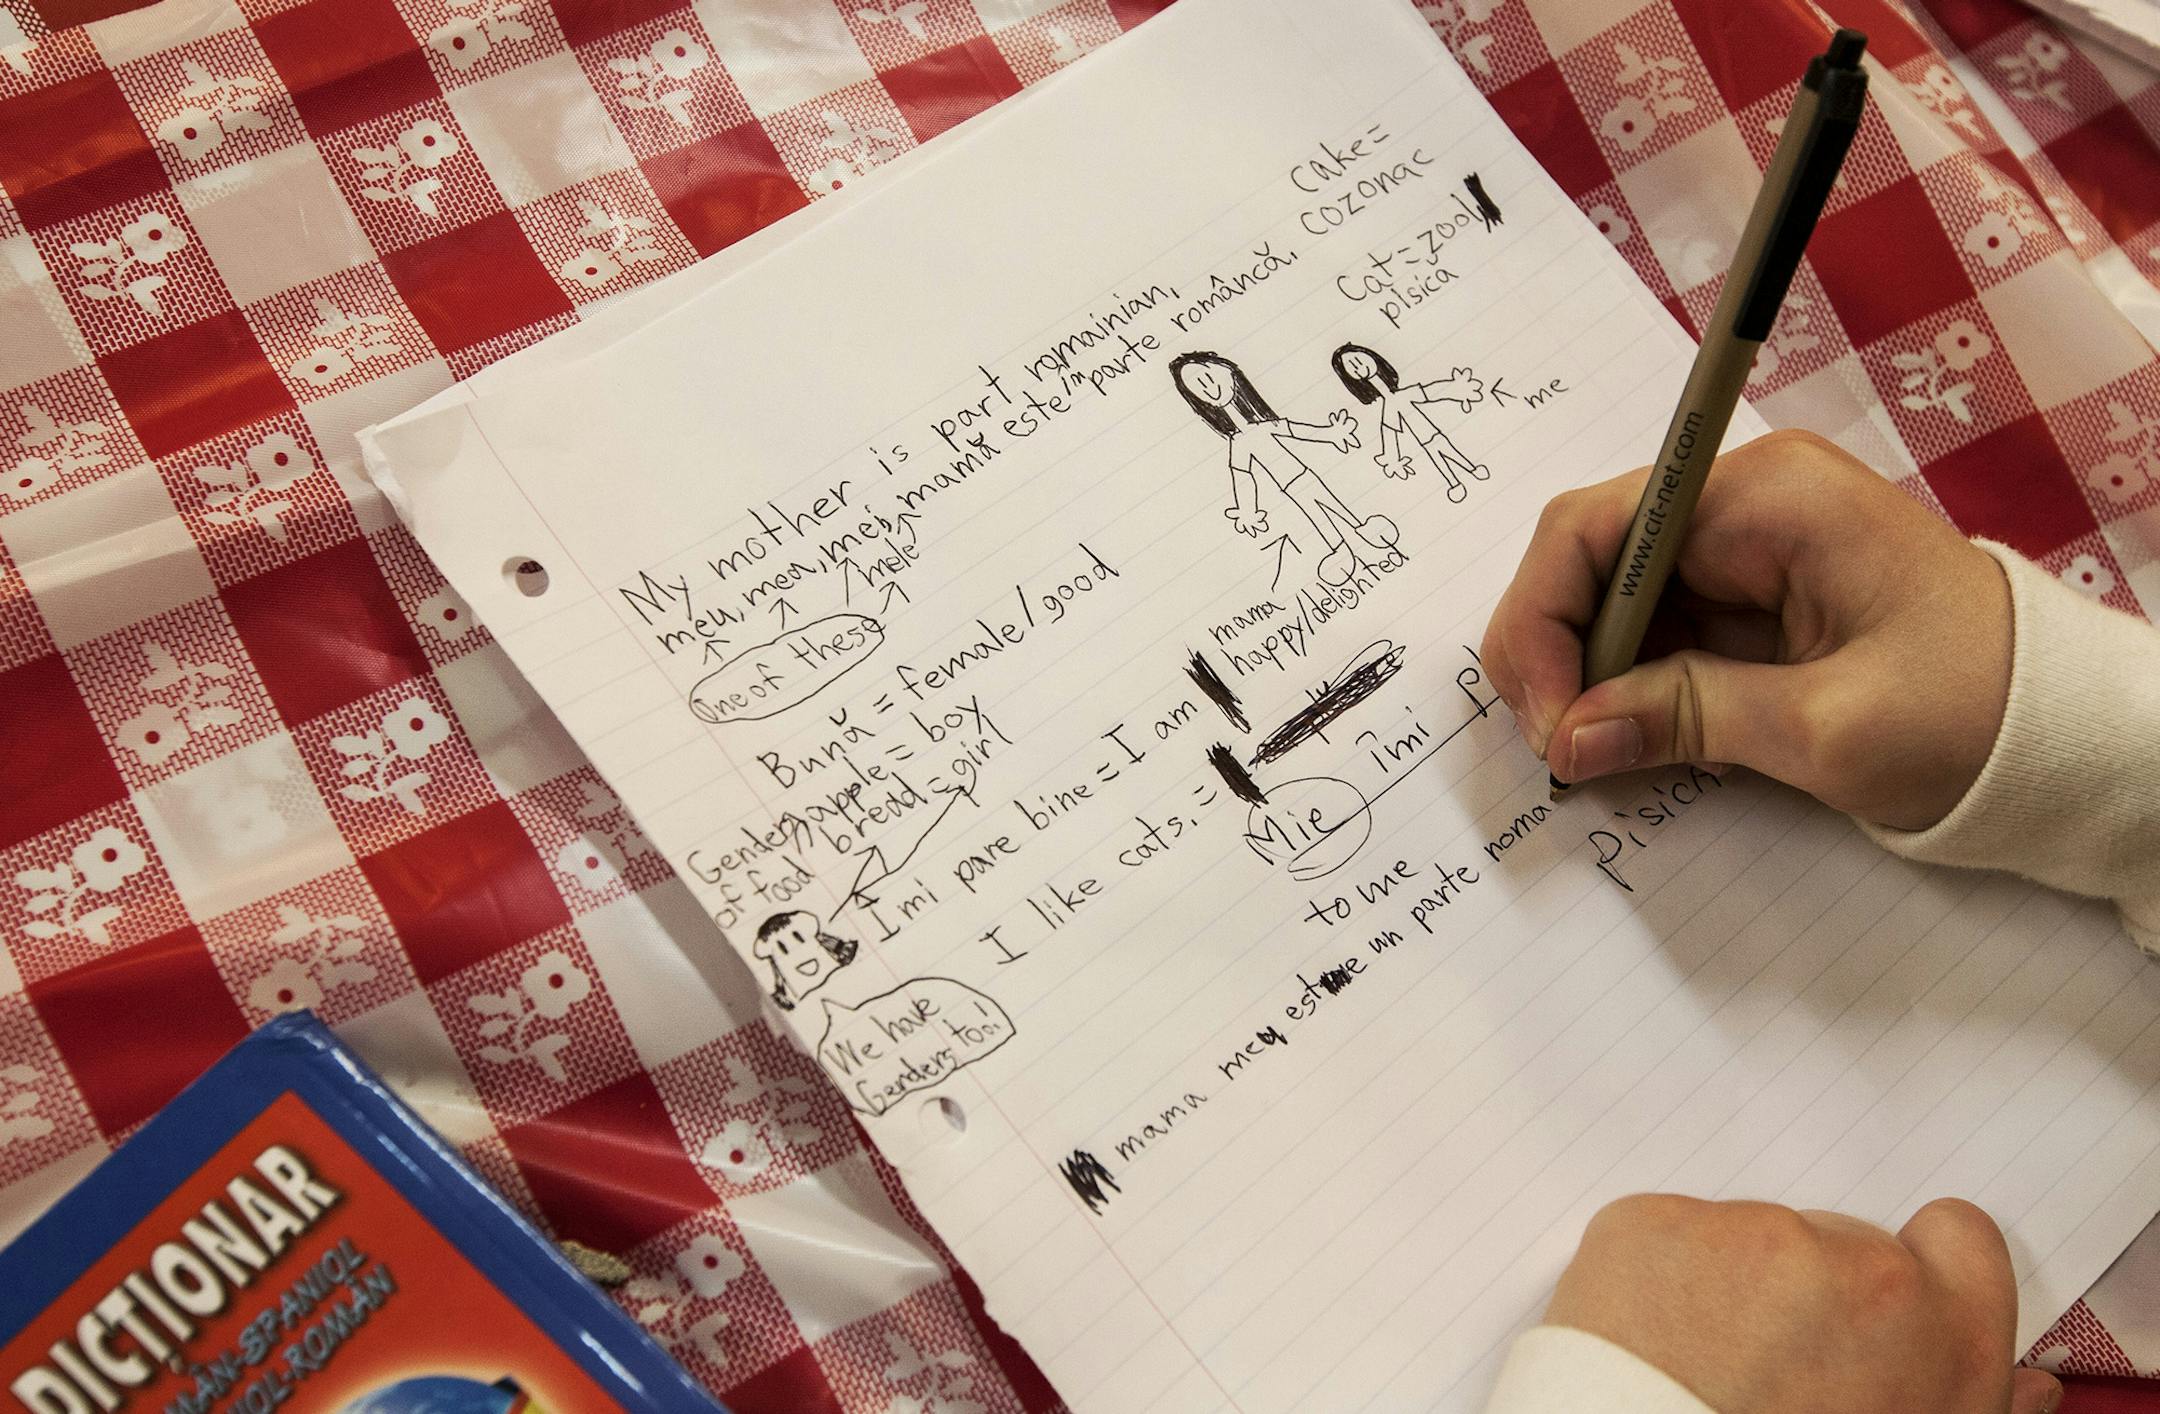 cake=
cozonac
Cat = zool
pisică
My mother is part romainian,
meu, mea, mei, mamă este în parte româncă,
mele
One of these
me
mama
happy/delighted
Bună = female/good
Genders apple = boy
of food bread = girl
Imi pare bine = I am
I like cats. =
Mie îmi pl
pisica
to me
We have
Genders too!
mama mea este un parte roma
www.cit-net.com
DICȚIONAR
ROMÂN-SPANIOL
SPANIOL-ROMÂN